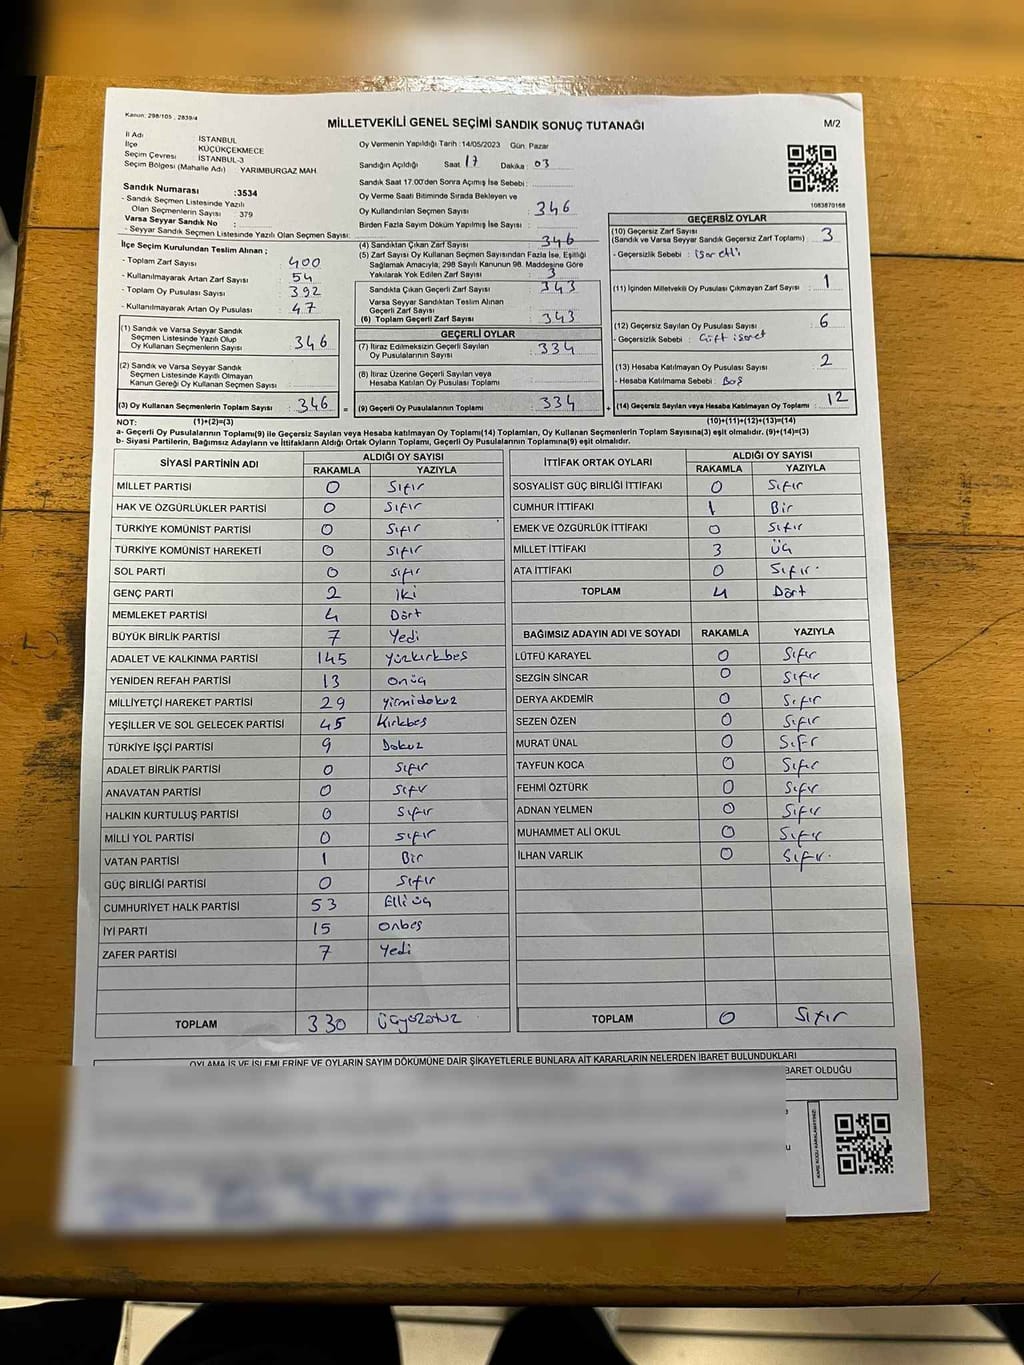 Kanun: 298/105 , 2839/4
MİLLETVEKİLİ GENEL SEÇİMİ SANDIK SONUÇ TUTANAĞI
M/2
İl Adı İSTANBUL
İlçe KÜÇÜKÇEKMECE
Seçim Çevresi İSTANBUL-3
Seçim Bölgesi (Mahalle Adı) YARIMBURGAZ MAH
Sandık Numarası :3534
- Sandık Seçmen Listesinde Yazılı
Olan Seçmenlerin Sayısı : 379
Varsa Seyyar Sandık No :
- Seyyar Sandık Seçmen Listesinde Yazılı Olan Seçmen Sayısı:
İlçe Seçim Kurulundan Teslim Alınan ;
- Toplam Zarf Sayısı : 400
- Kullanılmayarak Artan Zarf Sayısı : 54
- Toplam Oy Pusulası Sayısı : 392
- Kullanılmayarak Artan Oy Pusulası : 47
(1) Sandık ve Varsa Seyyar Sandık
Seçmen Listesinde Yazılı Olup
Oy Kullanan Seçmenlerin Sayısı : 346
(2) Sandık ve Varsa Seyyar Sandık
Seçmen Listesinde Kayıtlı Olmayan
Kanun Gereği Oy Kullanan Seçmen Sayısı :
(3) Oy Kullanan Seçmenlerin Toplam Sayısı : 346
Oy Vermenin Yapıldığı Tarih : 14/05/2023 Gün: Pazar
Sandığın Açıldığı Saat: 17 Dakika : 03
Sandık Saat 17.00'den Sonra Açımış İse Sebebi :
Oy Verme Saati Bitiminde Sırada Bekleyen ve
Oy Kullandırılan Seçmen Sayısı : 346
Birden Fazla Sayım Döküm Yapılmış İse Sayısı :
(4) Sandıktan Çıkan Zarf Sayısı : 346
(5) Zarf Sayısı Oy Kullanan Seçmen Sayısından Fazla İse, Eşitliği
Sağlamak Amacıyla, 298 Sayılı Kanunun 98. Maddesine Göre
Yakılarak Yok Edilen Zarf Sayısı : 3
Sandıkta Çıkan Geçerli Zarf Sayısı : 343
Varsa Seyyar Sandıktan Teslim Alınan
Geçerli Zarf Sayısı :
(6) Toplam Geçerli Zarf Sayısı : 343
GEÇERLİ OYLAR
(7) İtiraz Edilmeksizin Geçerli Sayılan
Oy Pusulalarının Sayısı : 334
(8) İtiraz Üzerine Geçerli Sayılan veya
Hesaba Katılan Oy Pusulası Toplamı :
= (9) Geçerli Oy Pusulalarının Toplamı : 334
1083870168
GEÇERSİZ OYLAR
(10) Geçersiz Zarf Sayısı : 3
(Sandık ve Varsa Seyyar Sandık Geçersiz Zarf Toplamı)
- Geçersizlik Sebebi : işaretli
(11) İçinden Milletvekili Oy Pusulası Çıkmayan Zarf Sayısı : 1
(12) Geçersiz Sayılan Oy Pusulası Sayısı : 6
- Geçersizlik Sebebi : Çift işaret
(13) Hesaba Katılmayan Oy Pusulası Sayısı : 2
- Hesaba Katılmama Sebebi : Boş
+ (14) Geçersiz Sayılan veya Hesaba Katılmayan Oy Toplamı : 12
NOT: (1)+(2)=(3) (10)+(11)+(12)+(13)=(14)
a- Geçerli Oy Pusulalarının Toplamı(9) ile Geçersiz Sayılan veya Hesaba katılmayan Oy Toplamı(14) Toplamları, Oy Kullanan Seçmenlerin Toplam Sayısına(3) eşit olmalıdır. (9)+(14)=(3)
b- Siyasi Partilerin, Bağımsız Adayların ve İttifakların Aldığı Ortak Oyların Toplamı, Geçerli Oy Pusulalarının Toplamına(9) eşit olmalıdır.
SİYASİ PARTİNİN ADI ALDIĞI OY SAYISI
RAKAMLA YAZIYLA
MİLLET PARTİSİ 0 Sıfır
HAK VE ÖZGÜRLÜKLER PARTİSİ 0 Sıfır
TÜRKİYE KOMÜNİST PARTİSİ 0 Sıfır
TÜRKİYE KOMÜNİST HAREKETİ 0 Sıfır
SOL PARTİ 0 Sıfır
GENÇ PARTİ 2 İki
MEMLEKET PARTİSİ 4 Dört
BÜYÜK BİRLİK PARTİSİ 7 Yedi
ADALET VE KALKINMA PARTİSİ 145 Yüzkırkbeş
YENİDEN REFAH PARTİSİ 13 Onüç
MİLLİYETÇİ HAREKET PARTİSİ 29 Yirmidokuz
YEŞİLLER VE SOL GELECEK PARTİSİ 45 Kırkbeş
TÜRKİYE İŞÇİ PARTİSİ 9 Dokuz
ADALET BİRLİK PARTİSİ 0 Sıfır
ANAVATAN PARTİSİ 0 Sıfır
HALKIN KURTULUŞ PARTİSİ 0 Sıfır
MİLLİ YOL PARTİSİ 0 Sıfır
VATAN PARTİSİ 1 Bir
GÜÇ BİRLİĞİ PARTİSİ 0 Sıfır
CUMHURİYET HALK PARTİSİ 53 Elliüç
İYİ PARTİ 15 Onbeş
ZAFER PARTİSİ 7 Yedi
TOPLAM 330 Üçyüzotuz
İTTİFAK ORTAK OYLARI ALDIĞI OY SAYISI
RAKAMLA YAZIYLA
SOSYALİST GÜÇ BİRLİĞİ İTTİFAKI 0 Sıfır
CUMHUR İTTİFAKI 1 Bir
EMEK VE ÖZGÜRLÜK İTTİFAKI 0 Sıfır
MİLLET İTTİFAKI 3 Üç
ATA İTTİFAKI 0 Sıfır
TOPLAM 4 Dört
BAĞIMSIZ ADAYIN ADI VE SOYADI RAKAMLA YAZIYLA
LÜTFÜ KARAYEL 0 Sıfır
SEZGİN SİNCAR 0 Sıfır
DERYA AKDEMİR 0 Sıfır
SEZEN ÖZEN 0 Sıfır
MURAT ÜNAL 0 Sıfr
TAYFUN KOCA 0 Sıfır
FEHMİ ÖZTÜRK 0 Sıfır
ADNAN YELMEN 0 Sıfır
MUHAMMET ALİ OKUL 0 Sıfır
İLHAN VARLIK 0 Sıfır
TOPLAM 0 Sıfır
OYLAMA İŞ VE İŞLEMLERİNE VE OYLARIN SAYIM DÖKÜMÜNE DAİR ŞİKAYETLERLE BUNLARA AİT KARARLARIN NELERDEN İBARET BULUNDUKLARI
BARET OLDUĞU